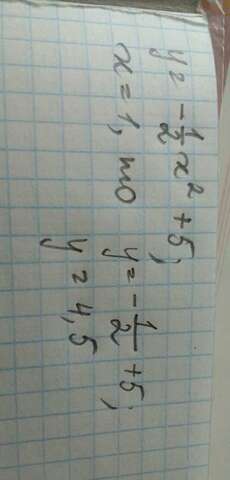 y = -1/2 x² + 5;
x = 1, то y = -1/2 + 5;
y = 4,5